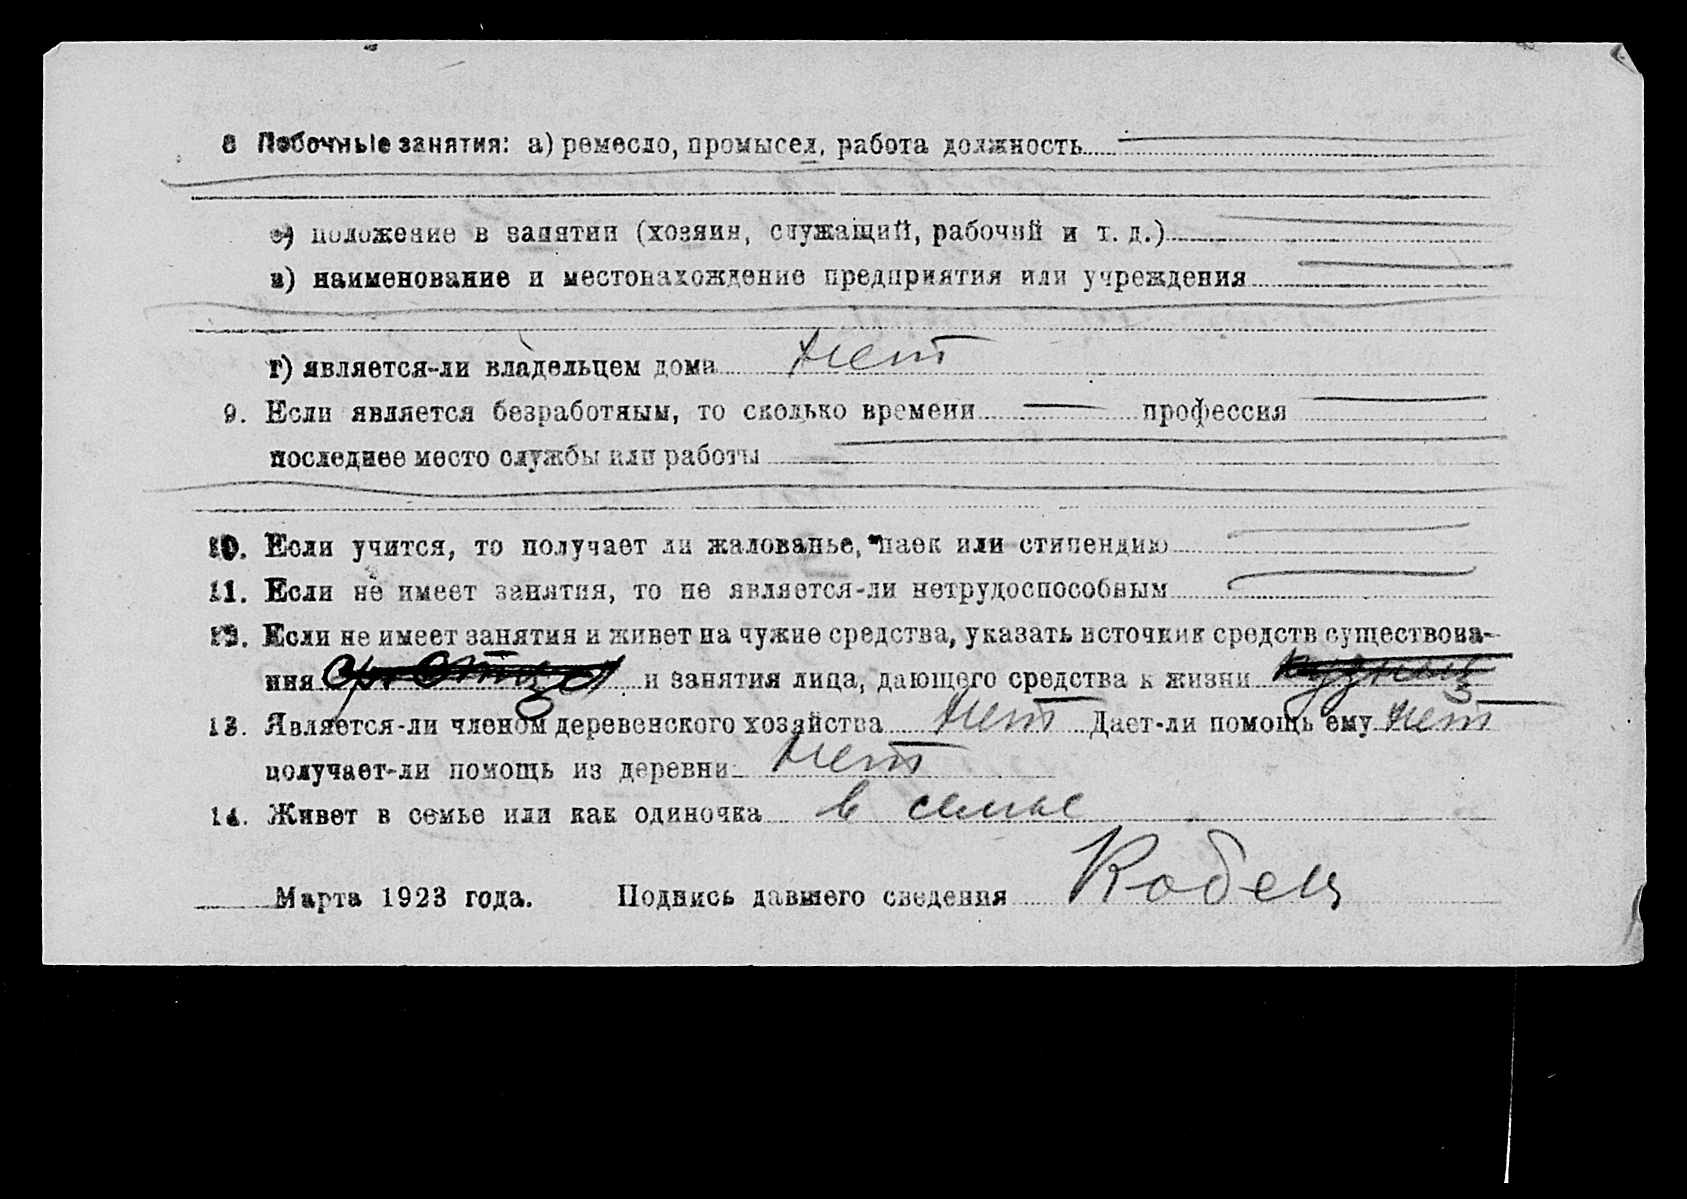 8 Побочные занятия: а) ремесло, промысел, работа должность
б) положение в занятии (хозяин, служащий, рабочий и т. д.)
в) наименование и местонахождение предприятия или учреждения
г) является-ли владельцем дома нет
9. Если является безработным, то сколько времени — профессия —
последнее место службы или работы
10. Если учится, то получает ли жалованье, паек или стипендию
11. Если не имеет занятия, то не является-ли нетрудоспособным
12. Если не имеет занятия и живет на чужие средства, указать источник средств существова-
ния и занятия лица, дающего средства к жизни
13. Является-ли членом деревенского хозяйства нет Дает-ли помощь ему нет
получает-ли помощь из деревни нет
14. Живет в семье или как одиночка в семье
Марта 1923 года. Подпись давшего сведения Кобец